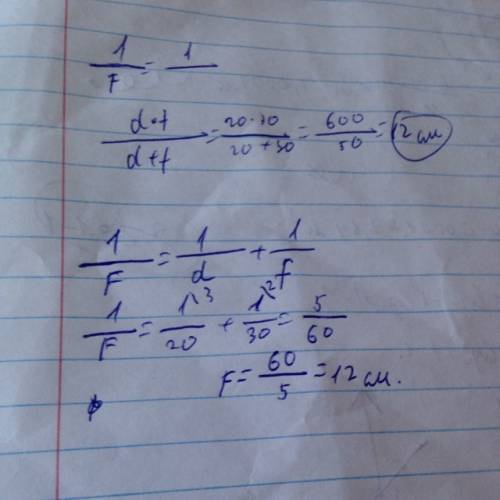 1/F = 1/
d·f/d+f = 20·30/20+30 = 600/50 = 12 см
1/F = 1/d + 1/f
1/F = 1^3/20 + 1^2/30 = 5/60
F = 60/5 = 12 см.